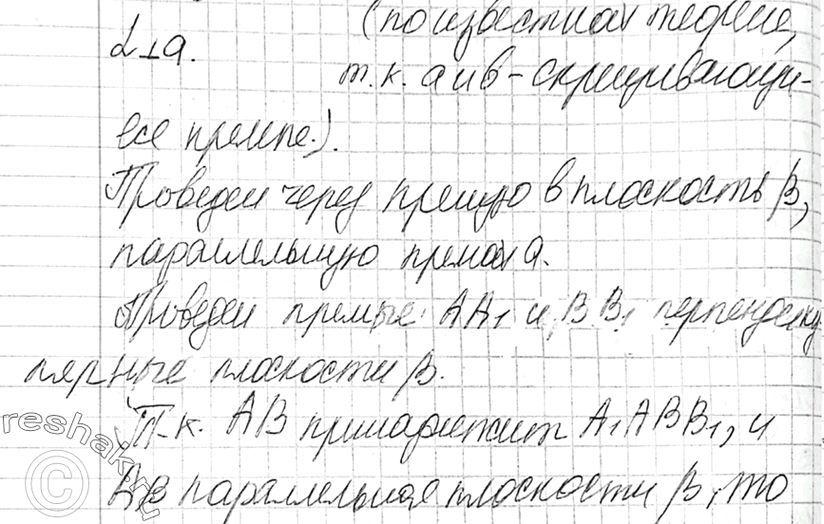 (по известной теореме,
α⊥a.
т.к. a и b - скрещивающи-
еся прямые.).
Проведем через прямую b плоскость β,
параллельную прямой a.
Проведем прямые AA₁ и BB₁ перпендику
лярные плоскости β.
Т.к. AB принадлежит A₁ABB₁, и
AB параллельная плоскости β, то
reshak.ru
©